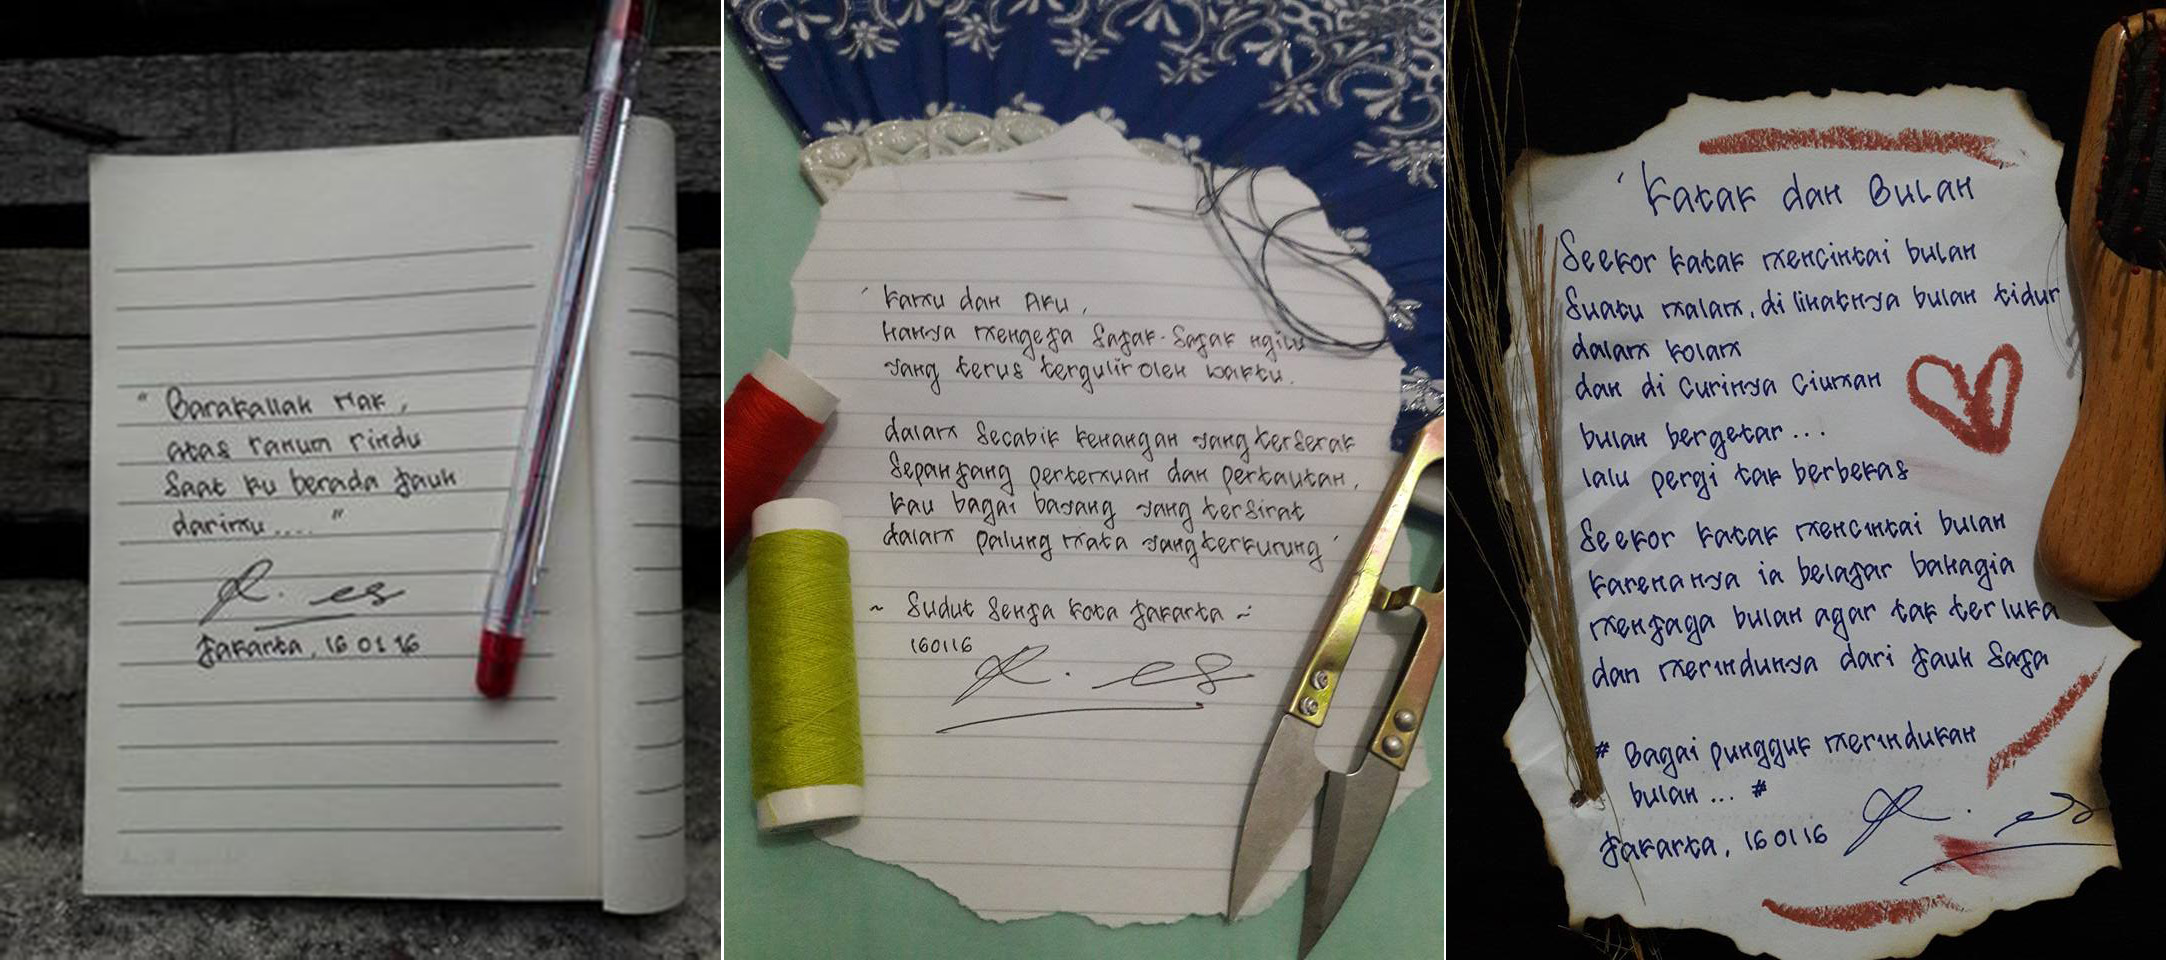 " Barakallah Mak,
atas ranum rindu
Saat ku berada jauh
darimu...."
R. es
Jakarta, 16 01 16
' Kamu dan Aku,
Hanya mengeja Sajak-Sajak ngilu
yang terus tergulir oleh waktu.
dalam Secabik kenangan yang terserak
Sepanjang pertemuan dan pertautan,
Kau bagai bayang yang tersirat
dalam palung mata yang terkurung '
~ Sudut Senja Kota Jakarta ~
160116
R. es
' Katak dan Bulan
Seekor katak mencintai bulan
Suatu malam, di lihatnya bulan tidur
dalam kolam
dan di curinya Ciuman
bulan bergetar...
lalu pergi tak berbekas
Seekor katak mencintai bulan
karenanya ia belajar bahagia
menjaga bulan agar tak terluka
dan merindunya dari jauh Saja
# Bagai pungguk merindukan
bulan... #
Jakarta, 16 01 16
R. es